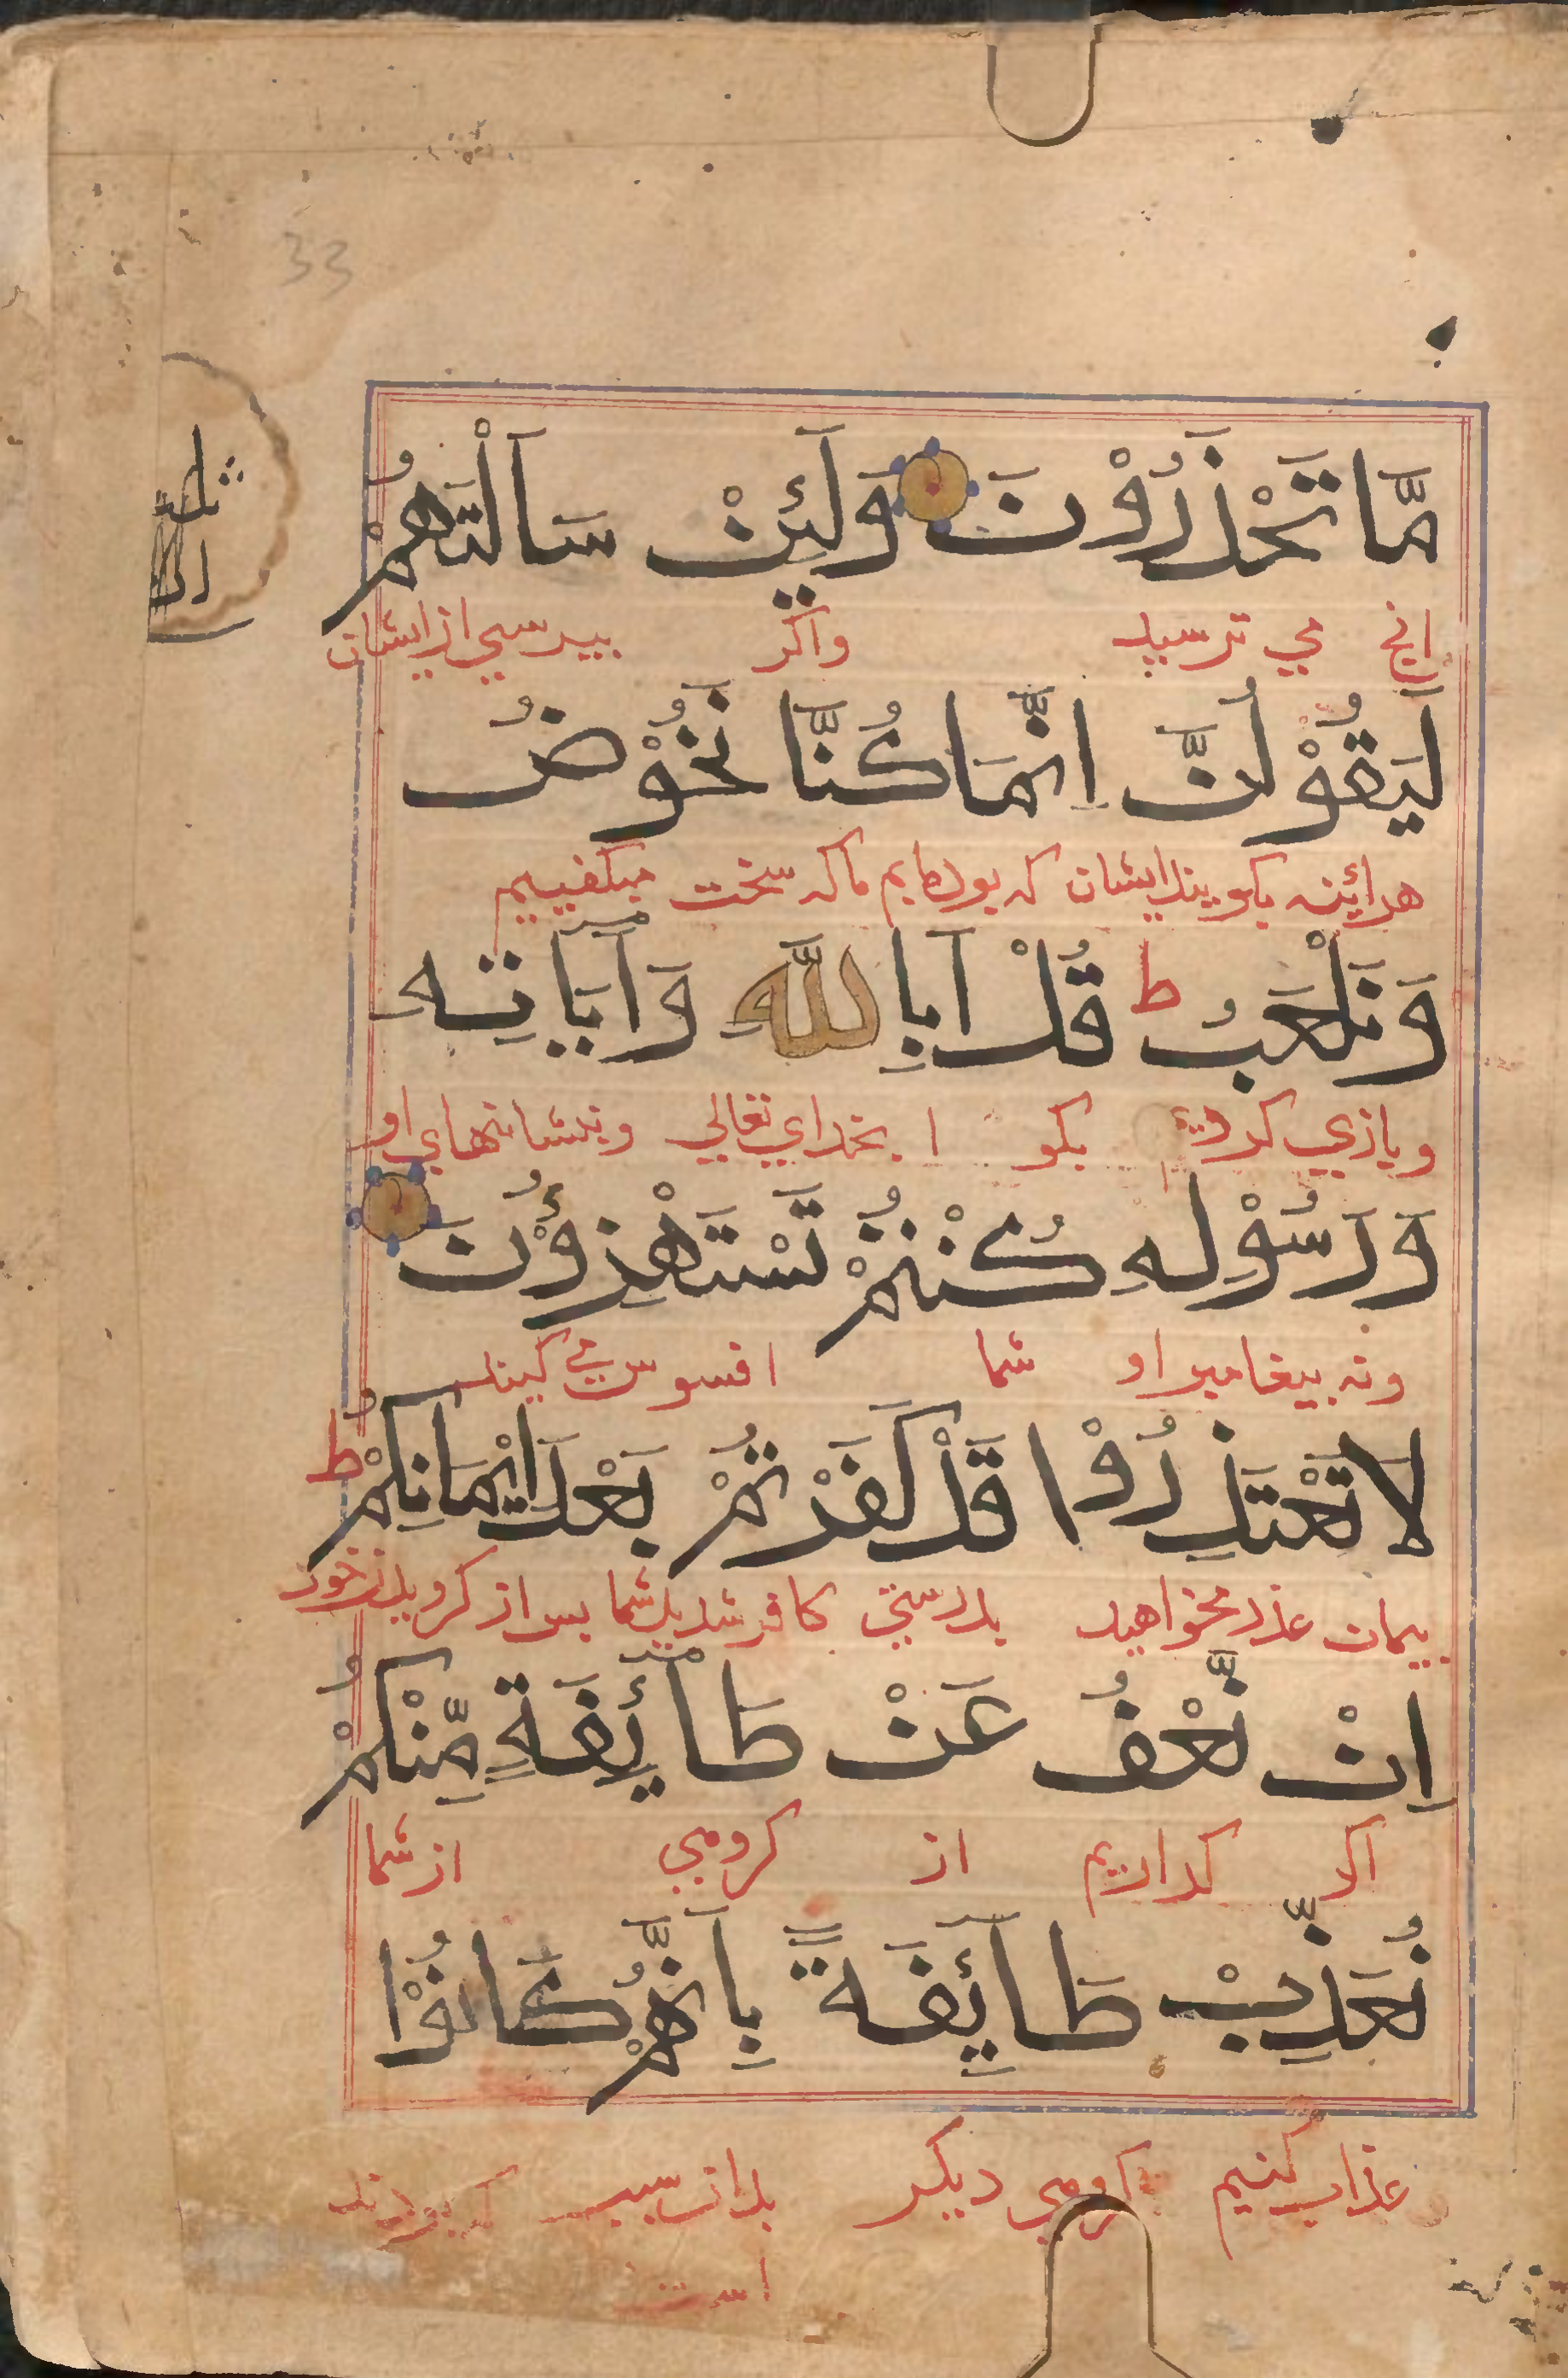 33
مَّا تَحْذَرُوْنَ وَلَئِنْ سَاَلْتَهُمْ
انچ می ترسید واکر بپرسی از ایشان
لَيَقُوْلُنَّ اِنَّمَا كُنَّا نَخُوْضُ
هرآئینه بکویند ایشان که بودهایم ما که سخت میکفتیم
وَنَلْعَبُ ط قُلْ اَبِاللّٰهِ وَآيَاتِهٖ
وبازی کردیم بکو ا بخدای تعالی وبنشانهای او
وَرَسُوْلِهٖ كُنْتُمْ تَسْتَهْزِؤُنَ
وبه پیغامبر او شما افسوس می کنید
لَا تَعْتَذِرُوْا قَدْ كَفَرْتُمْ بَعْدَ اِيْمَانِكُمْ ط
عذر مخواهید بدرستی کافر شدید شما پس از کرویدن خود
اِنْ نَّعْفُ عَنْ طَآئِفَةٍ مِّنْكُمْ
اکر از کروهی از شما
نُعَذِّبْ طَآئِفَةً بِاَنَّهُمْ كَانُوْا
عذاب کنیم کروهی دیکر بدان سبب که بودند